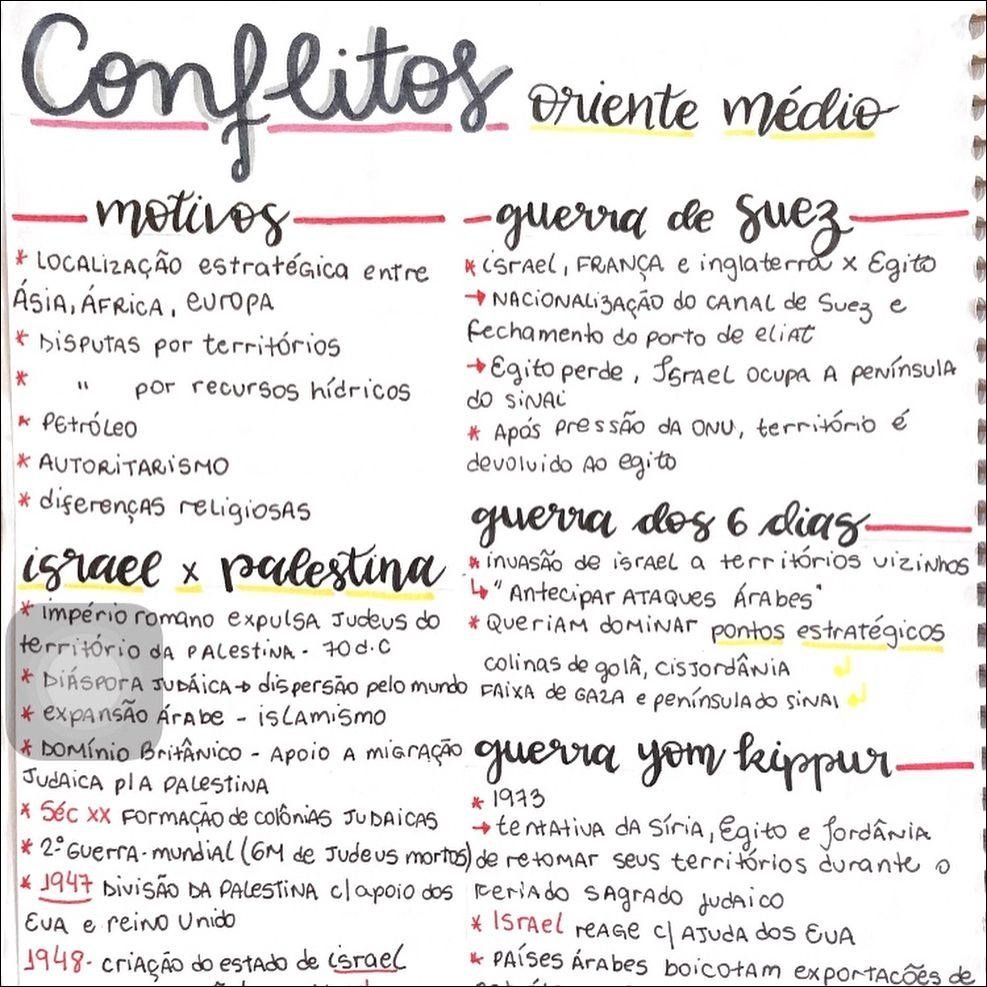 Conflitos oriente médio
motivos
* LOCALIZAÇÃO estratégica entre
ÁSIA, ÁFRICA, EUROPA
* DISPUTAS por territórios
* " por recursos hídricos
* PETRÓLEO
* AUTORITARISMO
* diferenças religiosas
israel x palestina
* império romano expulsa Judeus do
território da PALESTINA - 70 d.C
* DIÁSPORA JUDÁICA → dispersão pelo mundo
* expansão Árabe - islamismo
* DOMÍNIO Britânico - Apoio a migração
JUDAICA p/ A PALESTINA
* Séc XX FORMAÇÃO de colônias JUDAICAS
* 2ª Guerra-mundial (6M de Judeus mortos)
* 1947 DIVISÃO DA PALESTINA c/ apoio dos
EUA e reino Unido
1948- criação do estado de israel
guerra de Suez
* israel, FRANÇA e inglaterra x Egito
→ NACIONALIZAÇÃO do CANAL de Suez e
fechamento do porto de eliat
→ Egito perde, ISRAEL ocupa A península
do sinai
* Após pressão da ONU, território é
devolvido AO egito
guerra dos 6 dias
* invasão de israel a territórios vizinhos
↳ "Antecipar ATAQUES ÁRABES"
* QUERIAM DOMINAR pontos estratégicos
colinas de golã, cisjordânia
FAIXA de GAZA e península do SINAI
guerra yom kippur
* 1973
→ tentativa da Síria, Egito e Jordânia
de retomar seus territórios durante o
Feriado sagrado judaico
* Israel reage c/ AJUDA dos EUA
* PAÍSES ÁRABES boicotam exportações de